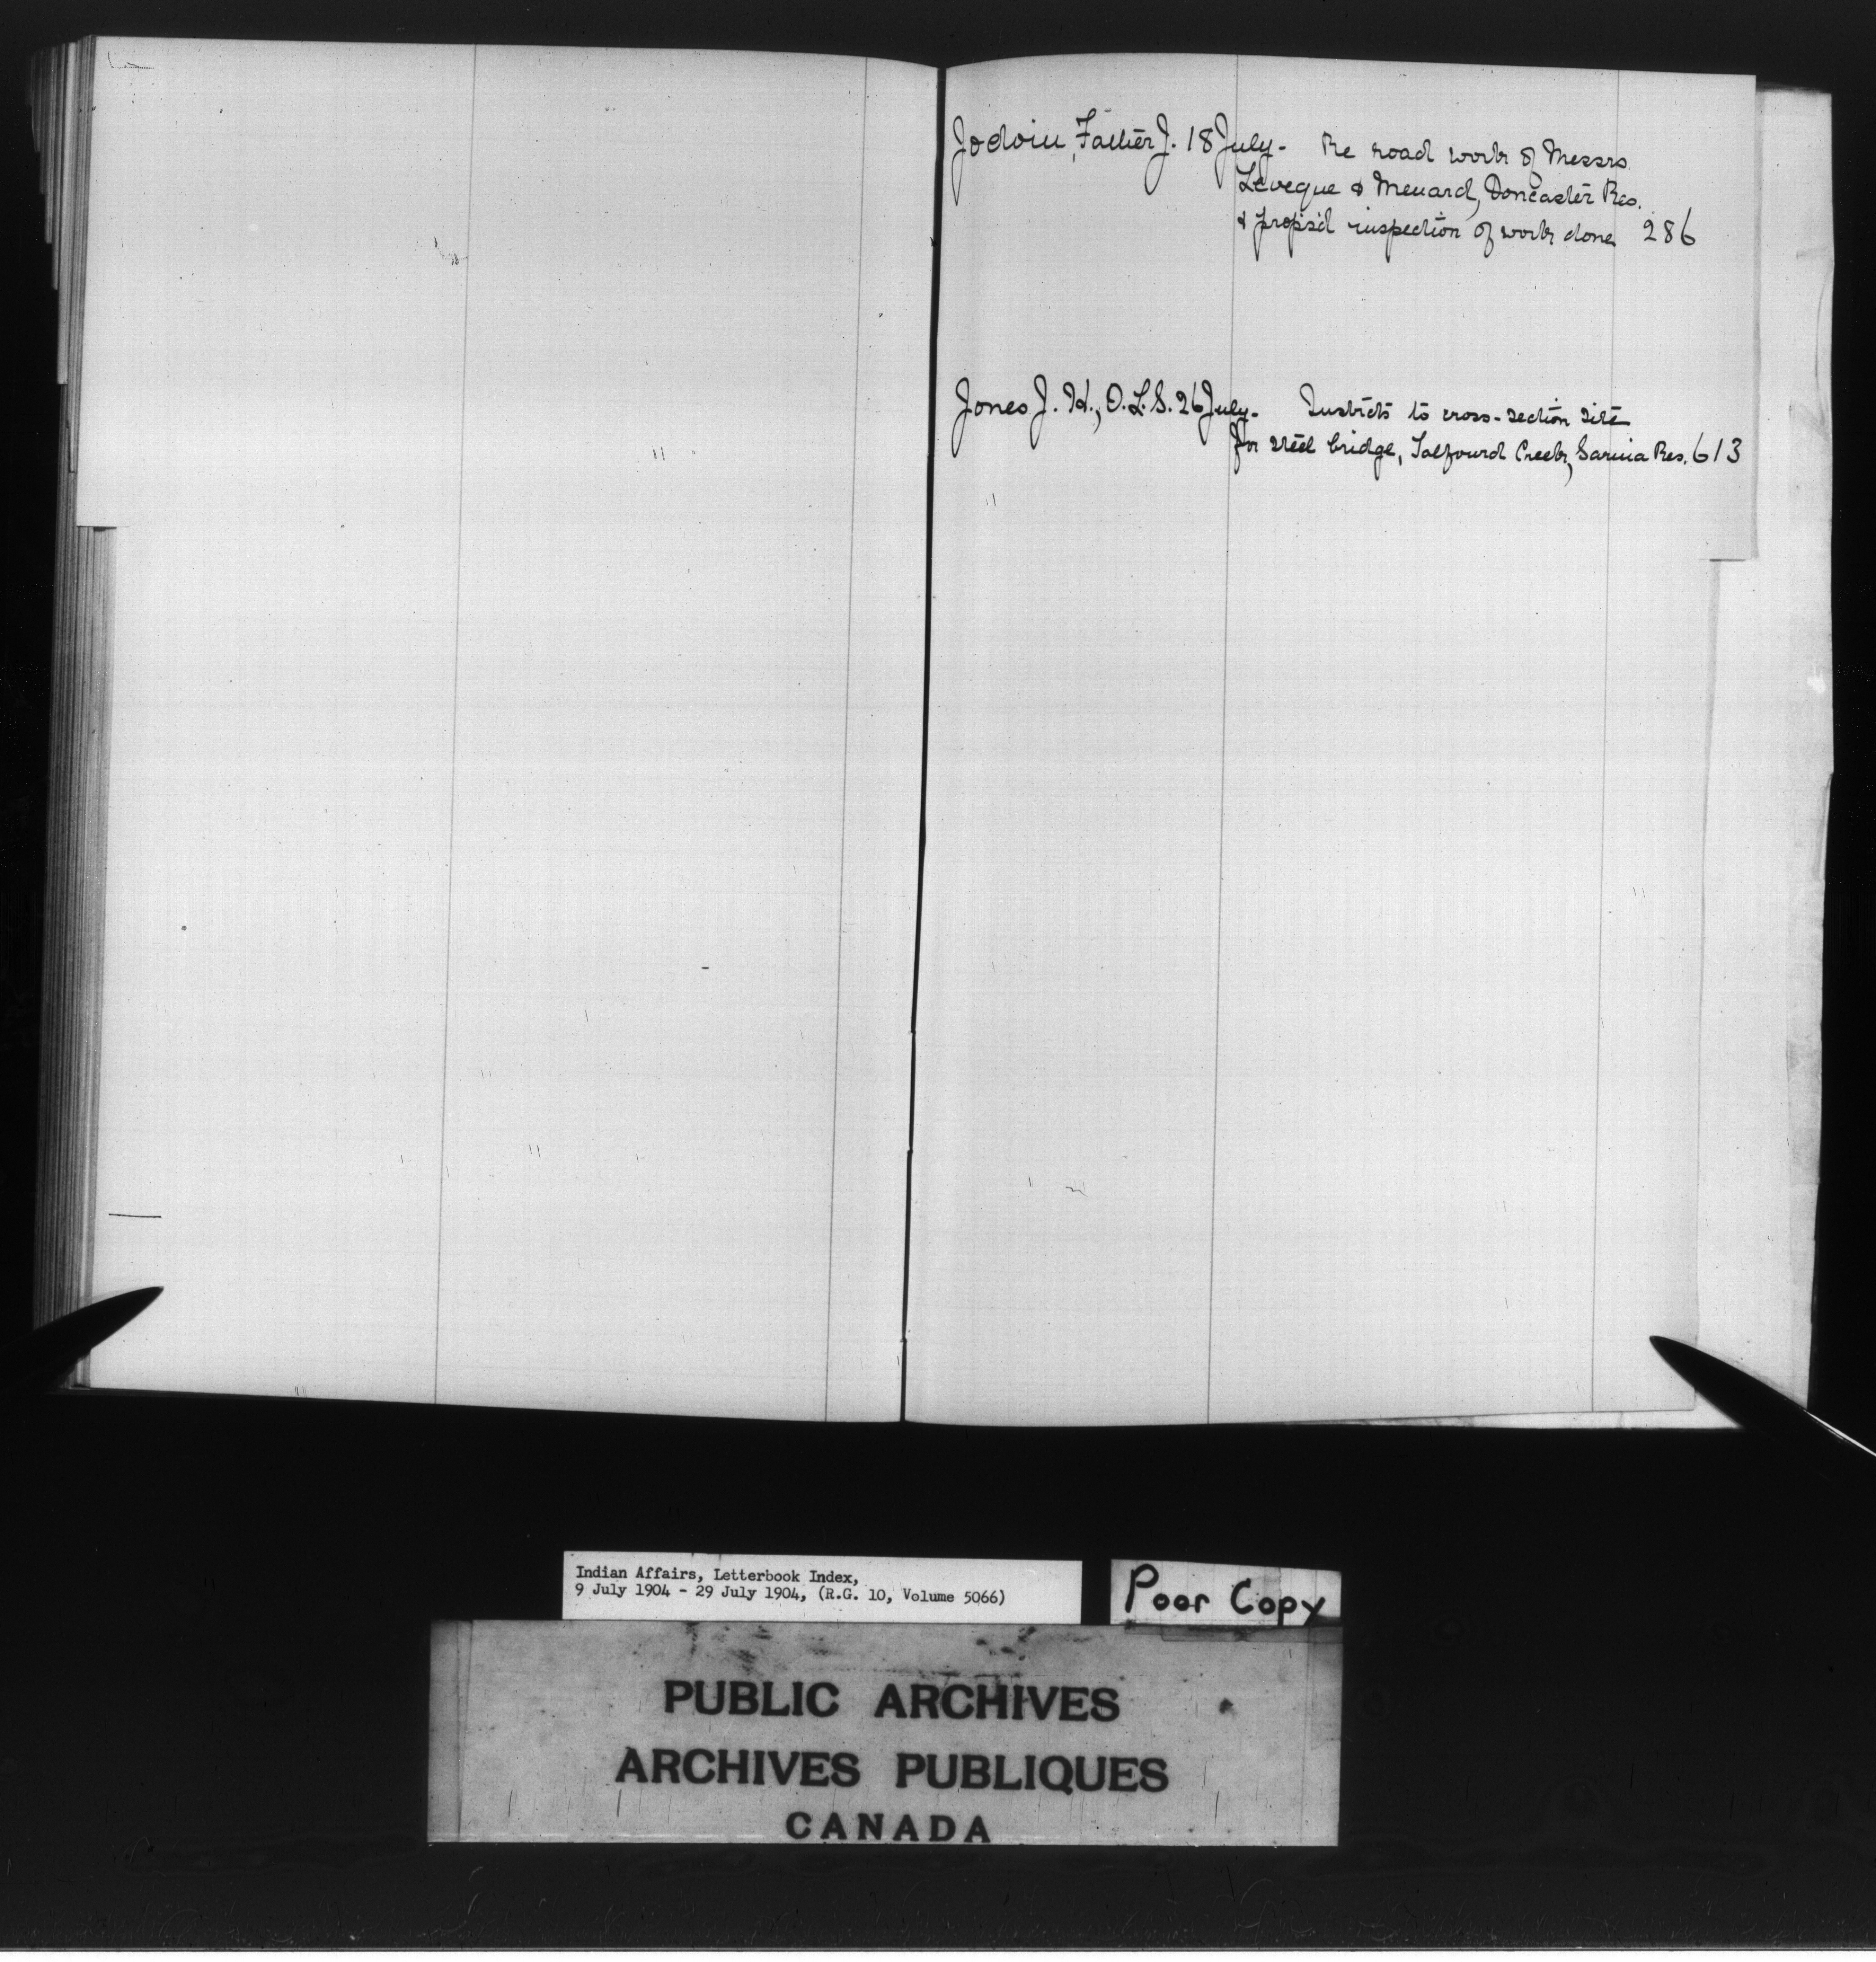 Jodoin, Father J. 18 July- Re road work of Messrs
Leveque & Menard, Doncaster Res.
& propsd inspection of work done 286
Jones J. H., O.L.S. 26 July- Instrcts to cross-section site
for steel bridge, Talfourd Creek, Sarnia Res. 613
Indian Affairs, Letterbook Index,
9 July 1904 - 29 July 1904, (R.G. 10, Volume 5066)
Poor Copy
PUBLIC ARCHIVES
ARCHIVES PUBLIQUES
CANADA